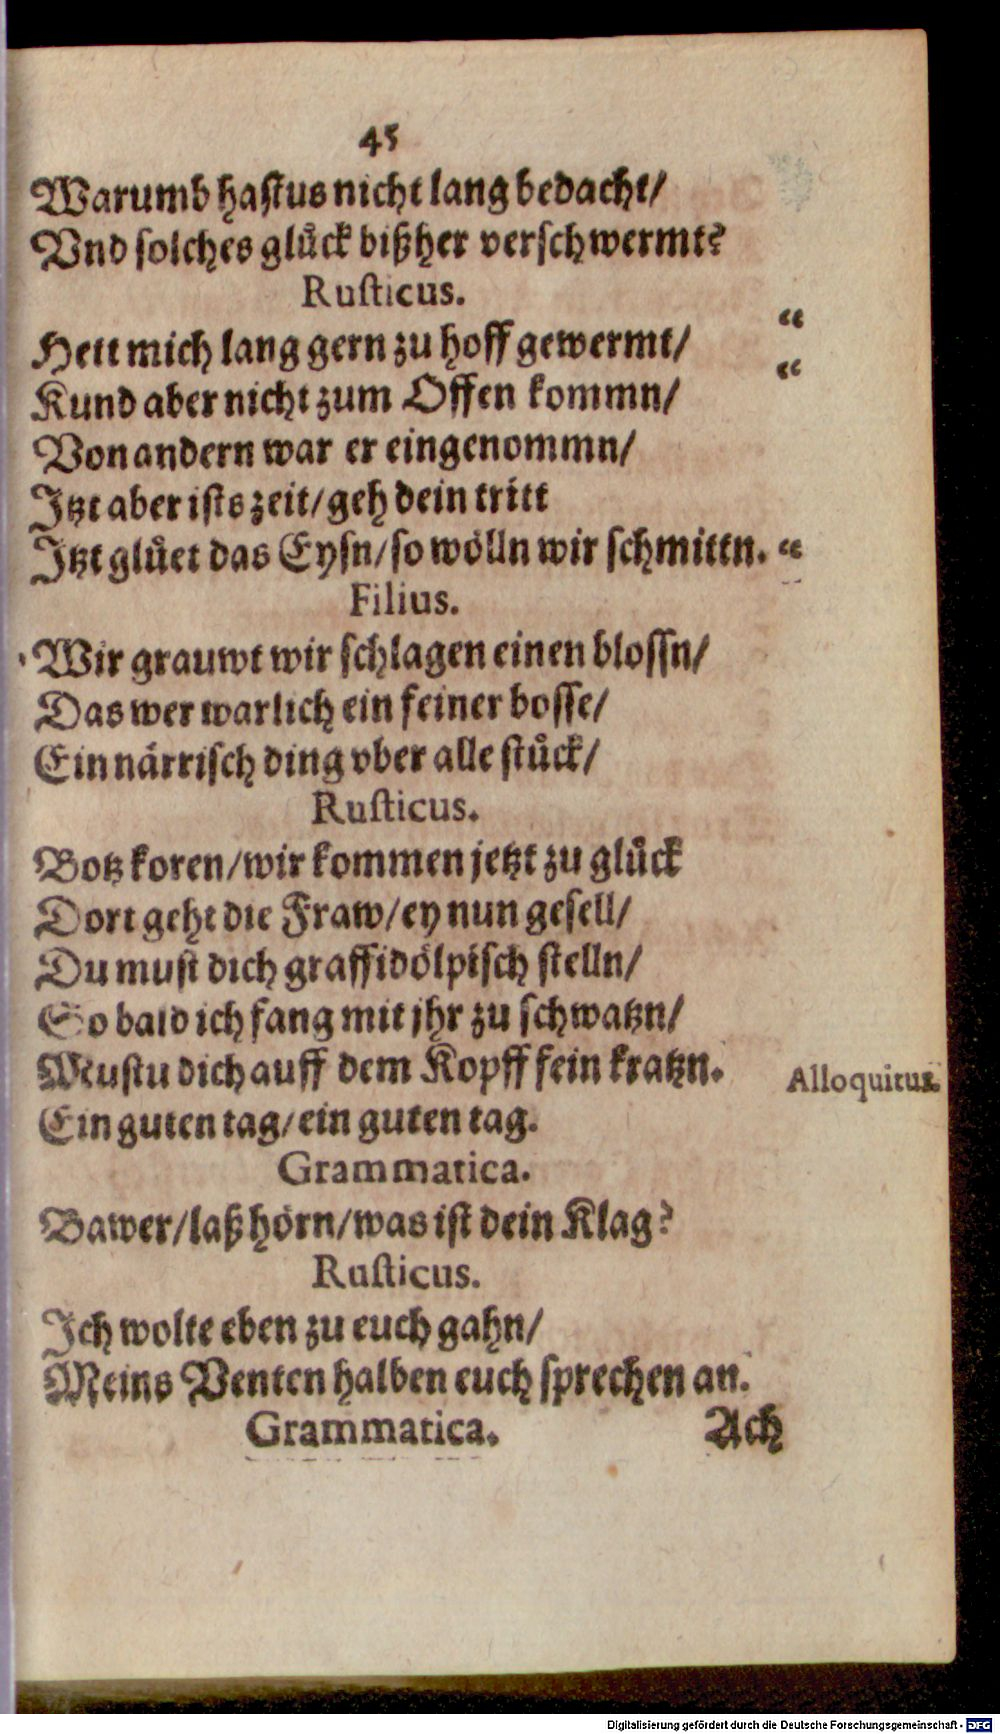 45
Warumb hastus nicht lang bedacht/
Vnd solches glůck bißher verschwermt?
Rusticus.
Hett mich lang gern zu hoff gewermt/ “
Kund aber nicht zum Offen kommn/ “
Von andern war er eingenommn/
Itzt aber ists zeit/geh dein tritt
Itzt glůet das Eysn/so wölln wir schmittn. “
Filius.
Wir grauwt wir schlagen einen blossn/
Das wer warlich ein feiner bosse/
Ein närrisch ding vber alle stůck/
Rusticus.
Botz koren/wir kommen jetzt zu glůck
Dort geht die Fraw/ey nun gesell/
Du must dich graffidölpisch stelln/
So bald ich fang mit jhr zu schwatzn/
Mustu dich auff dem Kopff fein kratzn.
Alloquitur.
Ein guten tag/ein guten tag.
Grammatica.
Bawer/laß hörn/was ist dein Klag?
Rusticus.
Ich wolte eben zu euch gahn/
Meins Venten halben euch sprechen an.
Grammatica. Ach
Digitalisierung gefördert durch die Deutsche Forschungsgemeinschaft - DFG